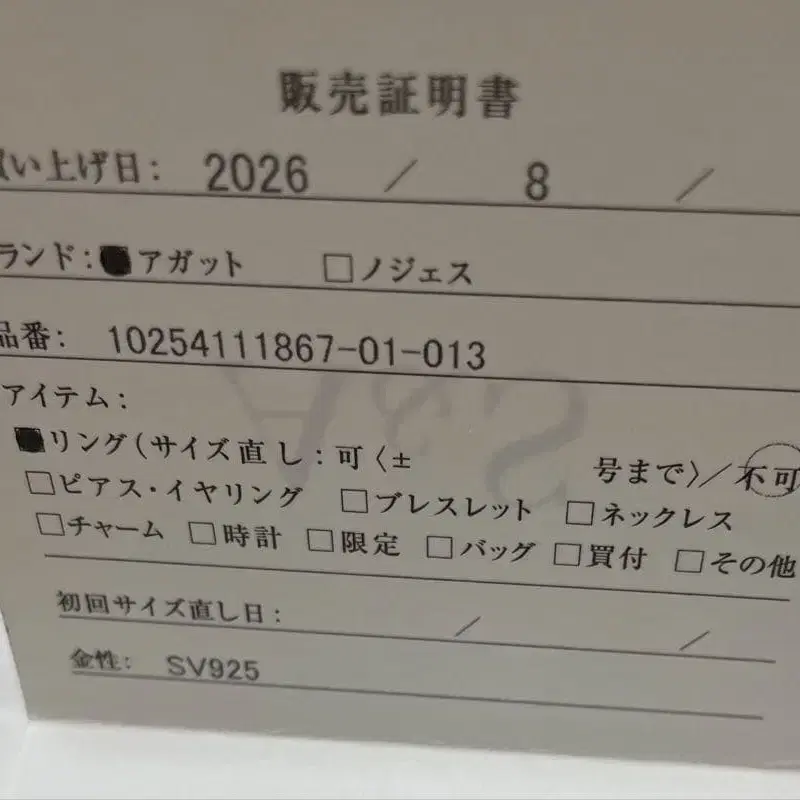 販売証明書
い上げ日: 2026 / 8 /
ランド:■アガット □ノジェス
品番: 10254111867-01-013
アイテム:
■リング(サイズ直し:可〈± 号まで〉/不可
□ピアス・イヤリング □ブレスレット □ネックレス
□チャーム □時計 □限定 □バッグ □買付 □その他
初回サイズ直し日: / /
金性: SV925